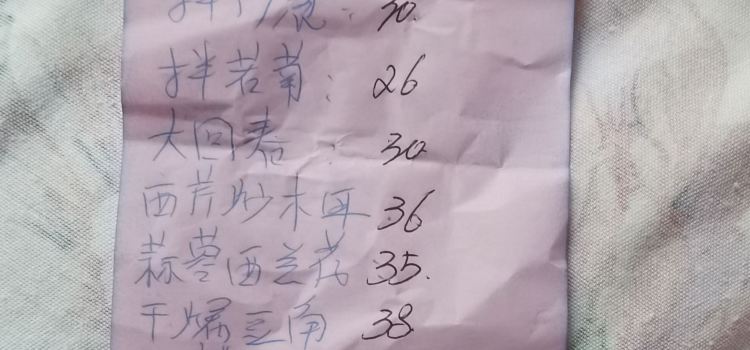 拌苦菊: 26
大回春: 30
西芹炒木耳 36
蒜蓉西兰花 35.
干煸豆角 38